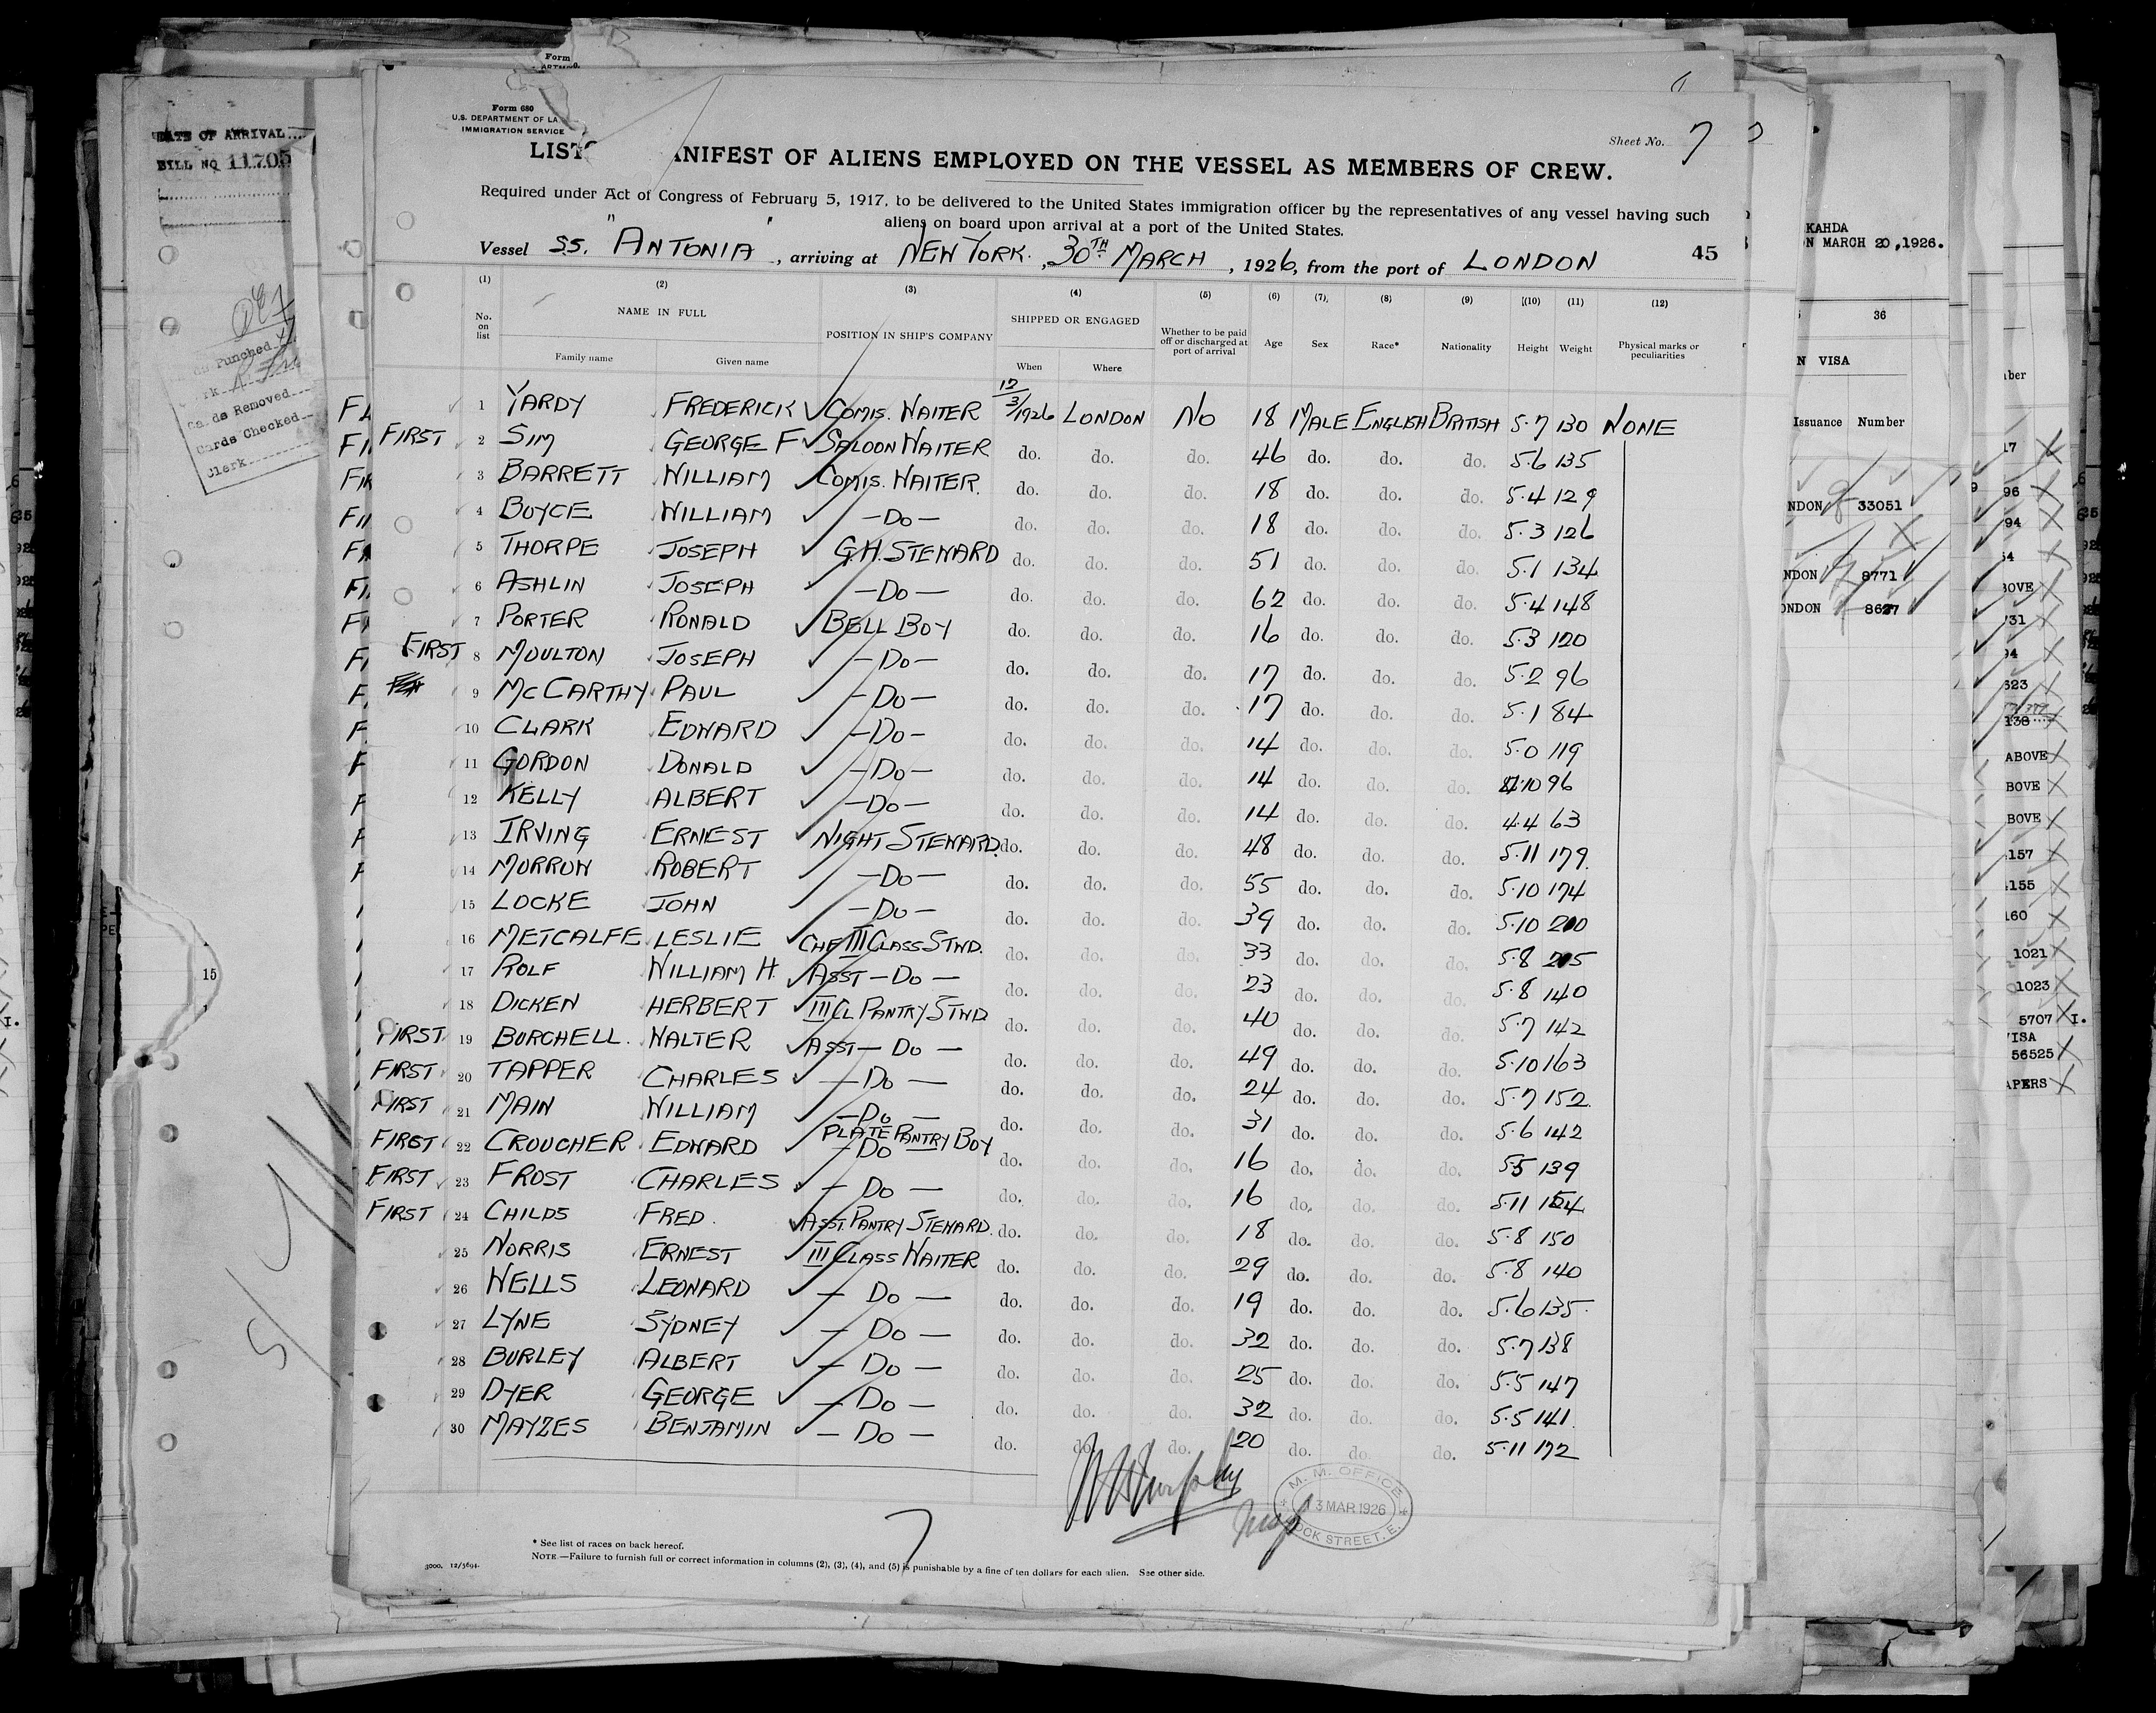 Form
DATE OF ARRIVAL
BILL NO 11705
Punched
Cards Removed
Cards Checked
Clerk
15
Form 680
U.S. DEPARTMENT OF LA
IMMIGRATION SERVICE
Sheet No. 7
LIST ANIFEST OF ALIENS EMPLOYED ON THE VESSEL AS MEMBERS OF CREW.
Required under Act of Congress of February 5, 1917, to be delivered to the United States immigration officer by the representatives of any vessel having such
aliens on board upon arrival at a port of the United States.
Vessel SS. "ANTONIA", arriving at NEW YORK, 30TH MARCH, 1926, from the port of LONDON 45
(1) (2) (3) (4) (5) (6) (7) (8) (9) (10) (11) (12)
No. on list NAME IN FULL POSITION IN SHIP'S COMPANY SHIPPED OR ENGAGED Whether to be paid off or discharged at port of arrival Age Sex Race* Nationality Height Weight Physical marks or peculiarities
Family name Given name When Where
1 YARDY FREDERICK COMIS. WAITER 12/3/1926 LONDON NO 18 MALE ENGLISH BRITISH 5.7 130 NONE
FIRST 2 SIM GEORGE F SALOON WAITER do. do. do. 46 do. do. do. 5.6 135
3 BARRETT WILLIAM COMIS. WAITER. do. do. do. 18 do. do. do. 5.4 129
4 BOYCE WILLIAM —DO— do. do. do. 18 do. do. do. 5.3 126
5 THORPE JOSEPH G.H. STEWARD do. do. do. 51 do. do. do. 5.1 134
6 ASHLIN JOSEPH —DO— do. do. do. 62 do. do. do. 5.4 148
7 PORTER RONALD BELL BOY do. do. do. 16 do. do. do. 5.3 120
FIRST 8 MOULTON JOSEPH —DO— do. do. do. 17 do. do. do. 5.2 96
9 MCCARTHY PAUL —DO— do. do. do. 17 do. do. do. 5.1 84
10 CLARK EDWARD —DO— do. do. do. 14 do. do. do. 5.0 119
11 GORDON DONALD —DO— do. do. do. 14 do. do. do. 4.10 96
12 KELLY ALBERT —DO— do. do. do. 14 do. do. do. 4.4 63
13 IRVING ERNEST NIGHT STEWARD. do. do. do. 48 do. do. do. 5.11 179.
14 MORROW ROBERT —DO— do. do. do. 55 do. do. do. 5.10 174
15 LOCKE JOHN —DO— do. do. do. 39 do. do. do. 5.10 200
16 METCALFE LESLIE CHF III CLASS STWD. do. do. do. 33 do. do. do. 5.8 205
17 ROLF WILLIAM H. ASST —DO— do. do. do. 23 do. do. do. 5.8 140
18 DICKEN HERBERT III CL PANTRY STWD do. do. do. 40 do. do. do. 5.7 142
FIRST 19 BURCHELL. WALTER ASST — DO — do. do. do. 49 do. do. do. 5.10 163
FIRST 20 TAPPER CHARLES — DO — do. do. do. 24 do. do. do. 5.7 152
FIRST 21 MAIN WILLIAM — DO — do. do. do. 31 do. do. do. 5.6 142
FIRST 22 CROUCHER EDWARD PLATE PANTRY BOY —DO do. do. do. 16 do. do. do. 5.5 139
FIRST 23 FROST CHARLES — DO — do. do. do. 16 do. do. do. 5.11 154
FIRST 24 CHILDS FRED. ASST. PANTRY STEWARD. do. do. do. 18 do. do. do. 5.8 150
25 NORRIS ERNEST III CLASS WAITER do. do. do. 29 do. do. do. 5.8 140
26 WELLS LEONARD — DO — do. do. do. 19 do. do. do. 5.6 135.
27 LYNE SYDNEY — DO — do. do. do. 32 do. do. do. 5.7 138
28 BURLEY ALBERT — DO — do. do. do. 25 do. do. do. 5.5 147
29 DYER GEORGE — DO — do. do. do. 32 do. do. do. 5.5 141.
30 MAYZES BENJAMIN — DO — do. do. do. 20 do. do. do. 5.11 172
M. M. OFFICE
13 MAR 1926
DOCK STREET. E.
7
* See list of races on back hereof.
NOTE.—Failure to furnish full or correct information in columns (2), (3), (4), and (5) is punishable by a fine of ten dollars for each alien. See other side.
3000. 12/5694.
KAHDA
N MARCH 20,1926.
36
N VISA
Issuance Number
NDON 33051
NDON 8771
ONDON 8627
17
96
94
54
BOVE
731
94
623
138
ABOVE
BOVE
BOVE
157
155
160
1021
1023
5707 I.
VISA
56525
APERS